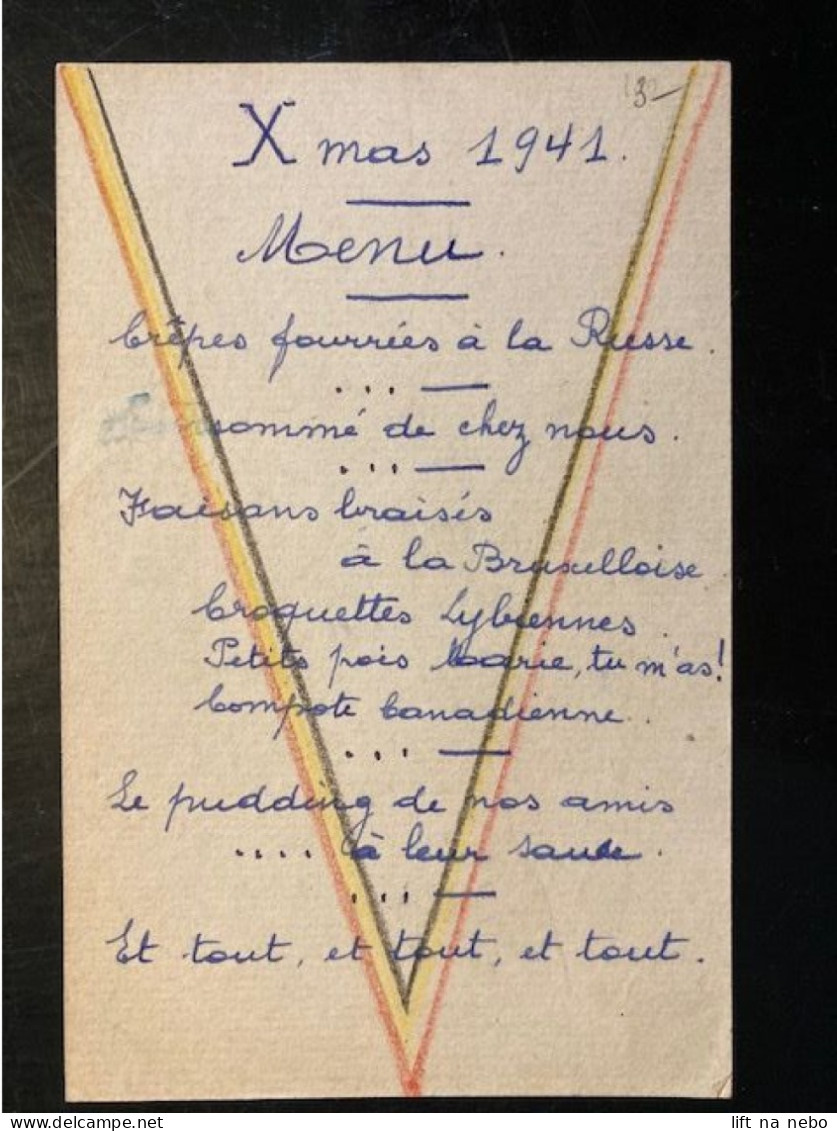 X mas 1941.
Menu.
Crêpes fourrées à la Russe.
sommé de chez nous.
Faisans braisés
à la Bruxelloise
Croquettes Lybiennes
Petits pois Marie, tu m'as!
Compote Canadienne.
Le pudding de nos amis
.... à leur sauce.
Et tout, et tout, et tout.
lift na nebo